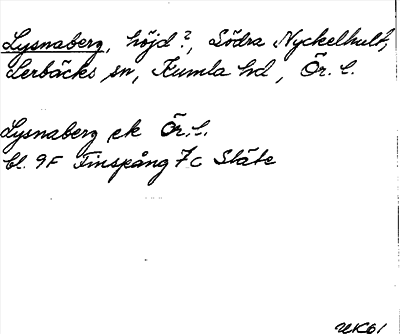 Lysnaberg, höjd?, Södra Nyckelhult,
Lerbäcks sn, Kumla hd, Ör. l.
Lysnaberg ek Ör. l.
bl. 9F Finspång 7c Släte
UK61